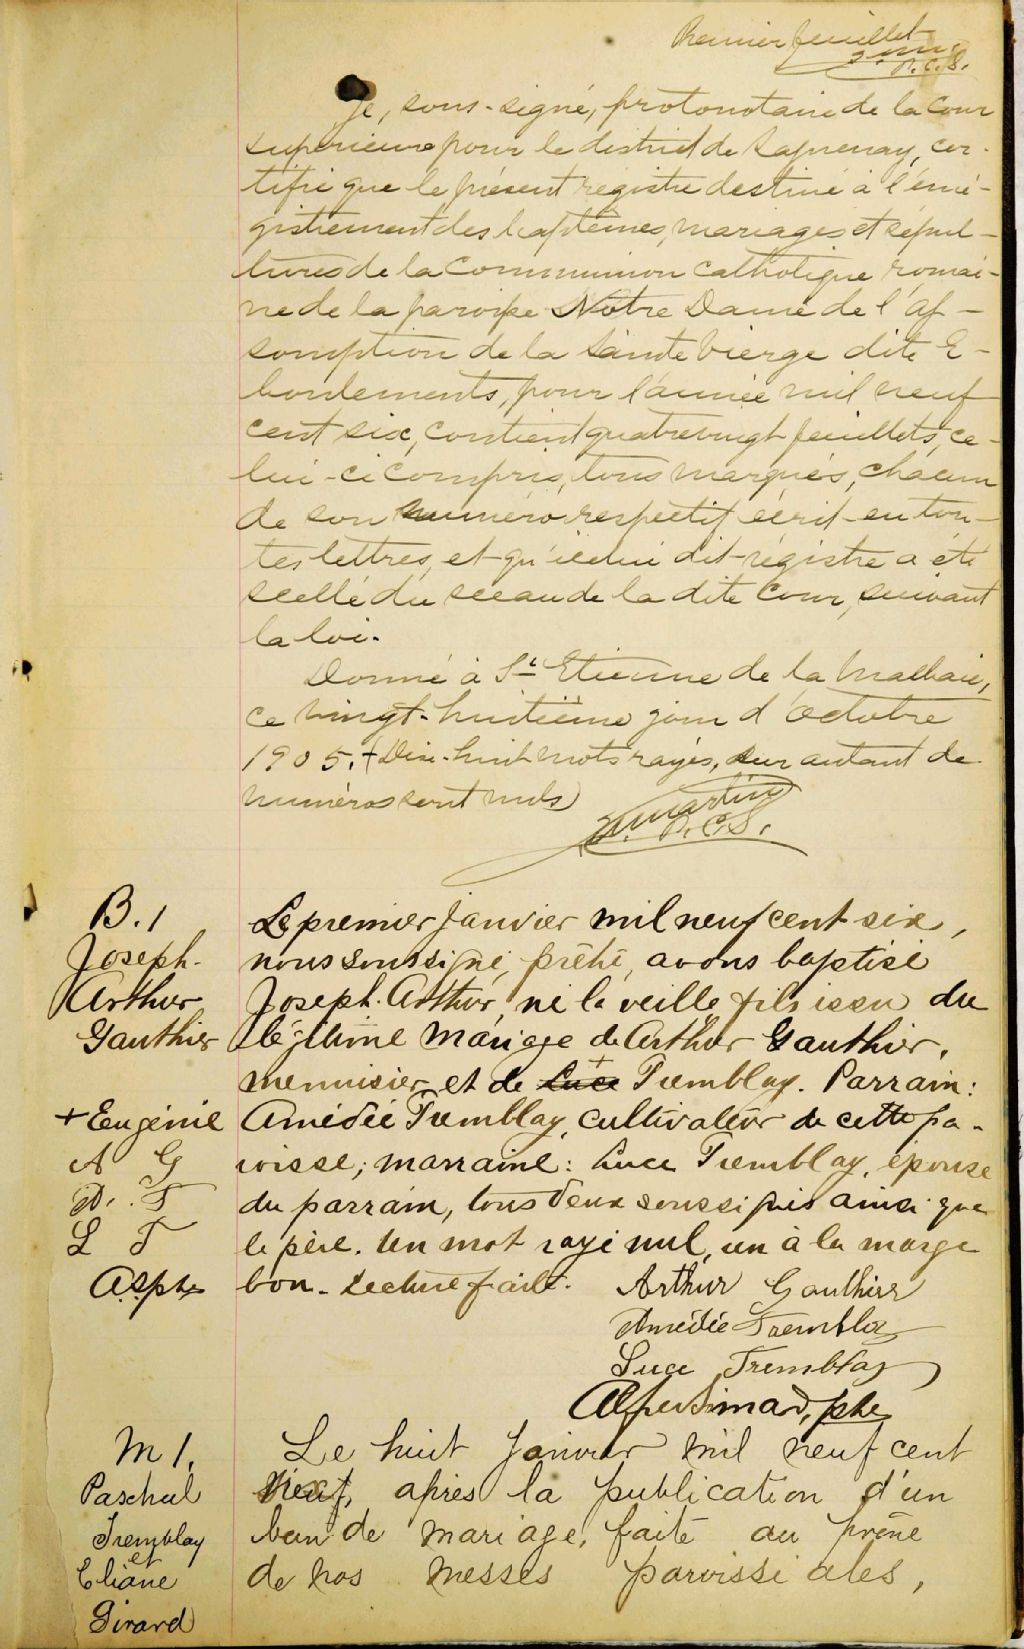 Premier feuillet
P.C.S.
Je, sous-signé, protonotaire de la Cour
Supérieure pour le district de Saguenay, cer-
tifie que le présent régistre destiné à l'enré-
gistrement des baptêmes, mariages et sépul-
tures de la Communion catholique romai-
ne de la paroisse Notre Dame de l'as-
somption de la Sainte Vierge dite E-
boulements, pour l'année mil neuf
cent six, contient quatrevingt feuillets, ce-
lui-ci compris, tous marqués, chacun
de son numéro respectif écrit en tou-
tes lettres, et qu'icelui dit régistre a été
scellé du sceau de la dite Cour, suivant
la loi.
Donné à St Etienne de la Malbaie,
ce vingt-huitième jour d'Octobre
1905. + (Dix-huit mots rayés, sur autant de
numéros sont nuls)
Martin
P.C.S.
B. 1
Joseph-
Arthur
Gauthier
+ Eugénie
A G
A. T
L T
A.S. ptre
Le premier janvier mil neuf cent six,
nous soussigné, prêtre, avons baptisé
Joseph-Arthur, né la veille, fils issu du
légitime mariage de Arthur Gauthier,
menuisier, et de Luce + Tremblay. Parrain:
Amédée Tremblay, cultivateur de cette pa-
roisse; marraine: Luce Tremblay, épouse
du parrain, tous deux soussignés ainsi que
le père. Un mot rayé nul, un à la marge
bon. Lecture faite. Arthur Gauthier
Amédée Tremblay
Luce Tremblay
Simard, ptre
M 1.
Paschal
Tremblay
et
Eliane
Girard
Le huit janvier mil neuf cent
après la publication d'un
ban de mariage, faite au prône
de nos messes paroissiales,